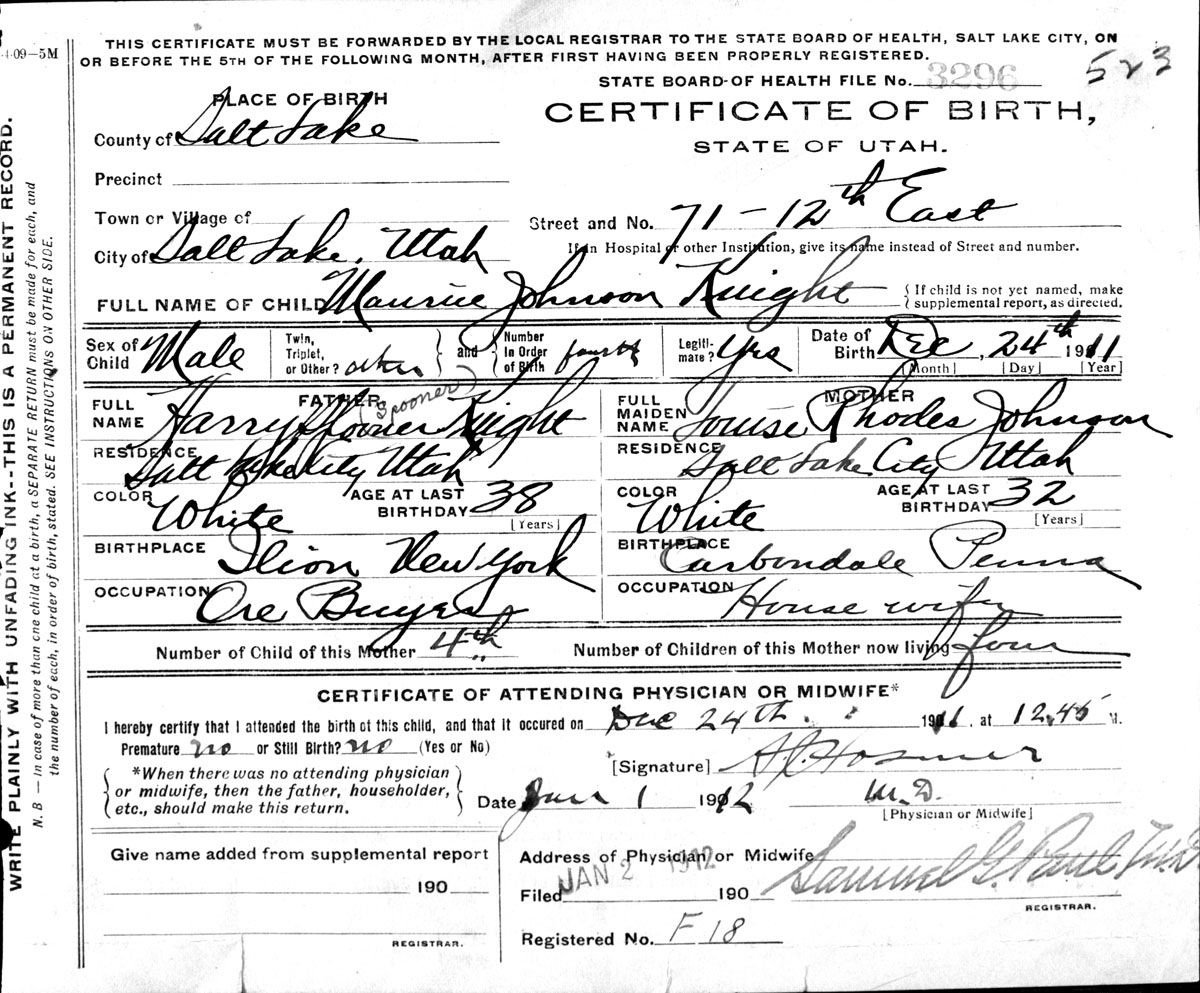 4-09-5M
THIS CERTIFICATE MUST BE FORWARDED BY THE LOCAL REGISTRAR TO THE STATE BOARD OF HEALTH, SALT LAKE CITY, ON
OR BEFORE THE 5TH OF THE FOLLOWING MONTH, AFTER FIRST HAVING BEEN PROPERLY REGISTERED.
STATE BOARD OF HEALTH FILE No. 3296 523
PLACE OF BIRTH
CERTIFICATE OF BIRTH,
County of Salt Lake
STATE OF UTAH.
Precinct
Town or Village of
Street and No. 71-12th East
City of Salt Lake, Utah
If in Hospital or other Institution, give its name instead of Street and number.
FULL NAME OF CHILD Maurice Johnson Knight
{If child is not yet named, make
supplemental report, as directed.
Sex of Child Male
Twin, Triplet, or Other? other
and
Number in Order of Birth fourth
Legitimate? Yes
Date of Birth Dec, 24th 1911
[Month] [Day] [Year]
FATHER
FULL NAME Harry Spooner Knight
(Spooner)
MOTHER
FULL MAIDEN NAME Louise Rhodes Johnson
RESIDENCE Salt Lake City Utah
RESIDENCE Salt Lake City Utah
COLOR White
AGE AT LAST BIRTHDAY 38
[Years]
COLOR White
AGE AT LAST BIRTHDAY 32
[Years]
BIRTHPLACE Ilion New York
BIRTHPLACE Carbondale Penna
OCCUPATION Ore Buyer
OCCUPATION House wife
Number of Child of this Mother 4th
Number of Children of this Mother now living four
CERTIFICATE OF ATTENDING PHYSICIAN OR MIDWIFE*
I hereby certify that I attended the birth of this child, and that it occured on Dec 24th. 1911. at 12.45 M.
Premature no or Still Birth? no (Yes or No)
[Signature] A.C. Hosmer
{*When there was no attending physician
or midwife, then the father, householder,
etc., should make this return.}
Date Jan 1 1912
M.D.
[Physician or Midwife]
Give name added from supplemental report
190
REGISTRAR.
Address of Physician or Midwife
Filed JAN 2 1912 190
Samuel G. Paul, M.D.
REGISTRAR.
Registered No. F 18
WRITE PLAINLY WITH UNFADING INK--THIS IS A PERMANENT RECORD.
N. B — In case of more than one child at a birth, a SEPARATE RETURN must be made for each, and
the number of each, in order of birth, stated. SEE INSTRUCTIONS ON OTHER SIDE.